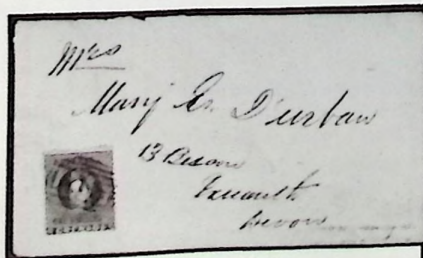 Mrs
Mary En D'urban
13 Beacon
Exmouth
Devon